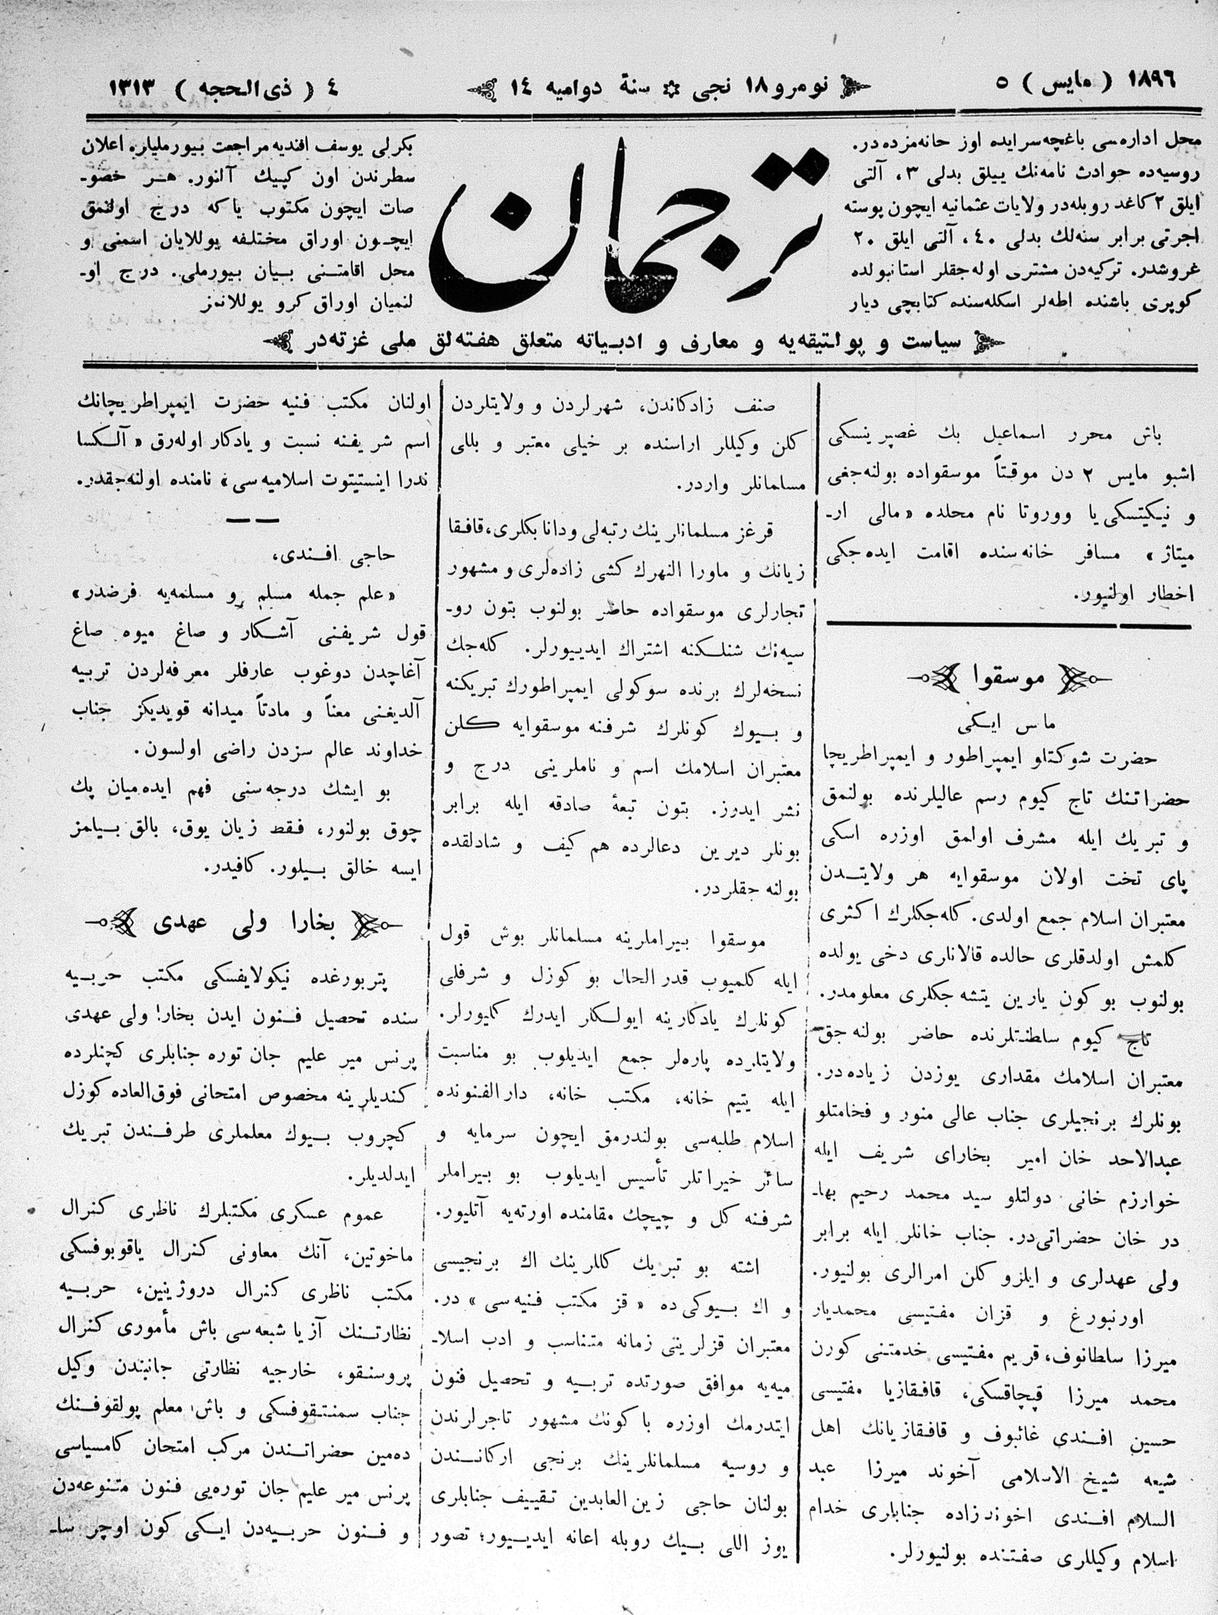 ١٨٩٦ ( مايس ) ٥
نومرو ١٨ نجی ✡ سنهٔ دواميه ١٤
٤ ( ذی الحجه ) ١٣١٣
محل اداره‌سی باغچه‌سرايده اوز حانه‌مزده‌در.
روسيه‌ده حوادث نامه‌نك ييلق بدلی ٣، آلتی
ايلق ٢ كاغد روبله‌در ولايات عثمانيه ايچون پوسته
اجرتی برابر سنه‌لك بدلی ٤٠، آلتی ايلق ٢٠
غروشدر. تركيه‌دن مشتری اوله‌جقلر استانبولده
كوپری باشنده اطه‌لر اسكله‌سنده كتابچی ديار
ترجمان
بكرلی يوسف افنديه مراجعت بيورمليلر. اعلان
سطرندن اون كپيك آلنور. هــر خصو‌ـ
صات ايچون مكتوب ياكه درج اولنمق
ايچــون اوراق مختلفه يوللايان اسمنی و
محل اقامتــنی بــيان بيورملی. درج او‌ـ
لنميان اوراق كرو يوللانمز
سياست و پولتيقه‌يه و معارف و ادبــياته متعلق هفته‌لق ملی غزته‌در
باش محرر اسماعيل بك غصپرينسكی
اشبو مايس ٢ دن موقتاً موسقواده بولنه‌جغی
و نيكيتسكی يا ووروتا نام محلده «مالی ار‌ـ
ميتاژ» مسافر خانه‌سنده اقامت ايده‌جكی
اخطار اولنيور.
موسقوا
ماس ايــكی
حضرت شوكتلو ايمپراطور و ايمپراطريچا
حضراتنك تاج كيوم رسم عاليلرنده بولنمق
و تبريك ايله مشرف اولمق اوزره اسكی
پای تخت اولان موسقوايه هر ولايتــدن
معتبران اسلام جمع اولدی. كله‌جكلرك اكثری
كلمش اولدقلری حالده قالانلری دخی يولده
بولنوب بو كون يارين يتشه جكلری معلومدر.
تاج كيوم سلطنتلرنده حاضر بولنه جق
معتبران اسلامك مقداری يوزدن زياده‌در.
بونلرك برنجيلری جناب عالی منور و فخامتلو
عبدالاحد خان امير بخارای شريف ايله
خوارزم خانی دولتلو سيد محمد رحيم بها‌ـ
در خان حضراتی‌در. جناب خانلر ايله برابر
ولی عهدلری و ايلزو كلن امرالری بولنيور.
اورنبورغ و قزان مفــتيسی محمديار
ميرزا سلطانوف، قريم مفتيسی خدمتنی كورن
محمد ميرزا قپچاقسكی، قافقازيا مفتيسی
حسين افــندی غائبوف و قافقازيانك اهل
شيعه شيخ الاسلامی آخوند ميرزا عبد
السلام افــندی اخوندزاده جنابلری خدام
اسلام وكيللری صفتنده بولنيورلر.
صنف زادكاندن، شهرلردن و ولايتلردن
كلن وكيللر اراسنده بر خيلی معتبر و بللی
مسلمانلر واردر.
قرغز مسلمانلرينك رتبه‌لی ودانا بكلری، قافــقا
زيانك و ماورا النهرك كشی زاده‌لری و مشهور
تجارلری موسقواده حاضر بولنوب بتون رو‌ـ
سيه‌نك شنلــكنه اشتراك ايديــورلر. كله‌جك
نسخه‌لرك برنده سوكولی ايمپراطورك تبريكنه
و بــيوك كونلرك شرفنه موسقوايه كلن
معتبران اسلامك اسم و ناملرينی درج و
نشر ايدرز. بتون تبعهٔ صادقه ايله برابر
بونلر ديرين دعالرده هم كيف و شادلقده
بولنه جقلردر.
موسقوا بــيراملرينه مسلمانلر بوش قول
ايله كلميوب قدر الحال بو كوزل و شرفلی
كونلرك يادكارينه ايولــكلر ايدرك كليورلر.
ولايتلرده پاره‌لر جمع ايديلوب بو مناسبت
ايله يتيم خانه، مكتب خانه، دارالفنونده
اسلام طلبه‌سی بولندرمق ايچون سرمايه و
سائر خيراتلر تأسيس ايديلوب بو بيراملر
شرفنه كل و چيچك مقامنده اورته‌يه آتليور.
اشته بو تبريك كللرينك اك برنجيسی
و اك بــيوكی ده «قز مكتب فنيه سی» در.
معتبران قزلرينی زمانه متناسب و ادب اسلا‌ـ
ميه‌يه موافق صورتده تربــيه و تحصيل فنون
ايتدرمك اوزره باكونك مشهور تاجرلرندن
و روسيه مسلمانلرينك برنجی اركانــندن
بولنان حاجی زين‌العابدين تقييف جنابلری
يوز اللی بــيك روبله اعانه ايديــيور؛ تصور
اولنان مكتب فنيه حضرت ايمپراطريچانك
اسم شريفنه نسبت و يادكار اوله‌رق «آلــكسا
ندرا اينستيتوت اسلاميه‌سی» نامنده اولنه‌جقدر.
حاجی افــندی،
«علم جمله مسلم و مسلمه‌يه فرضدر»
قول شريفنی آشــكار و صاغ ميوه صاغ
آغاچدن دوغوب عارفلر معرفه‌لردن تربيه
آلديغنی معناً و مادتاً ميدانه قويديكز جناب
خداوند عالم سزدن راضی اولسون.
بو ايشك درجه‌سنی فهم ايده‌ميان پك
چوق بولنور، فــقط زيان يوق، بالق بــيلمز
ايسه خالق بــيلور. كافيدر.
بخارا ولی عهدی
پتربورغده نيكولايفسكی مكتب حربــيه
سنده تحصيل فــنون ايدن بخارا ولی عهدی
پرنس مير عليم جان توره جنابلری كچنلرده
كنديلرينه مخصوص امتحانی فوق‌العاده كوزل
كچروب بــيوك معلملری طرفــندن تبريك
ايدلديلر.
عموم عسكری مكتبلرك ناظری كنرال
ماخوتين، آنك معاونی كنرال ياقوبوفسكی
مكتب ناظری كنرال دروژينين، حربــيه
نظارتــنك آزيا شعبه سی باش مأموری كنرال
پروسنقو، خارجيه نظارتی جانبندن وكيل
جناب سمنتــقوفسكی و باش معلم پولقوفــنك
ده‌مين حضراتــندن مركب امتحان كامسياسی
پرنس مير عليم جان توره‌يی فنون متــنوعه‌دن
و فــنون حربــيه‌دن ايــكی كون اوچر سا‌ـ